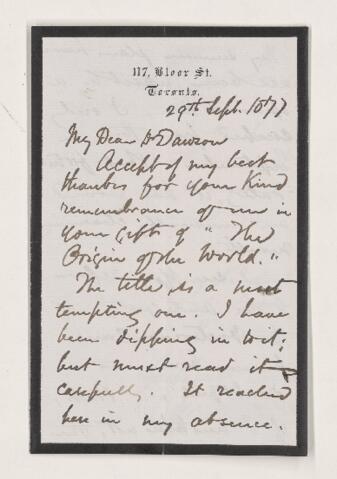 117, Bloor St.
Toronto.
29th Sept. 1877
My Dear Dr Dawson
Accept of my best
thanks for your kind
remembrance of me in
your gift of " The
Origin of the World."
The title is a most
tempting one. I have
been dipping into it;
but must read it
carefully. It reached
here in my absence.